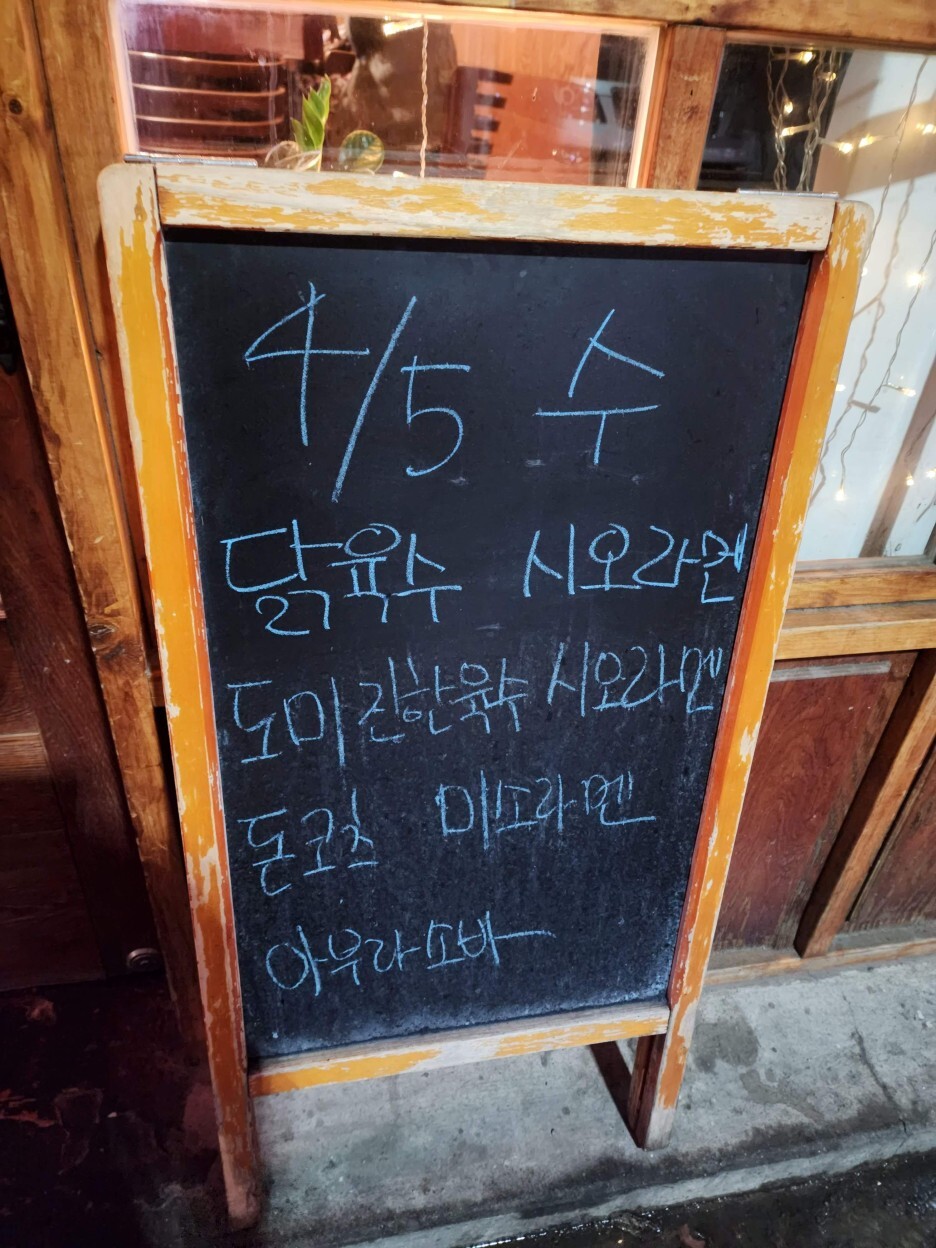 4/5 수
닭육수 시오라멘
도미 진한육수 시오라멘
돈코츠 미소라멘
아부라소바